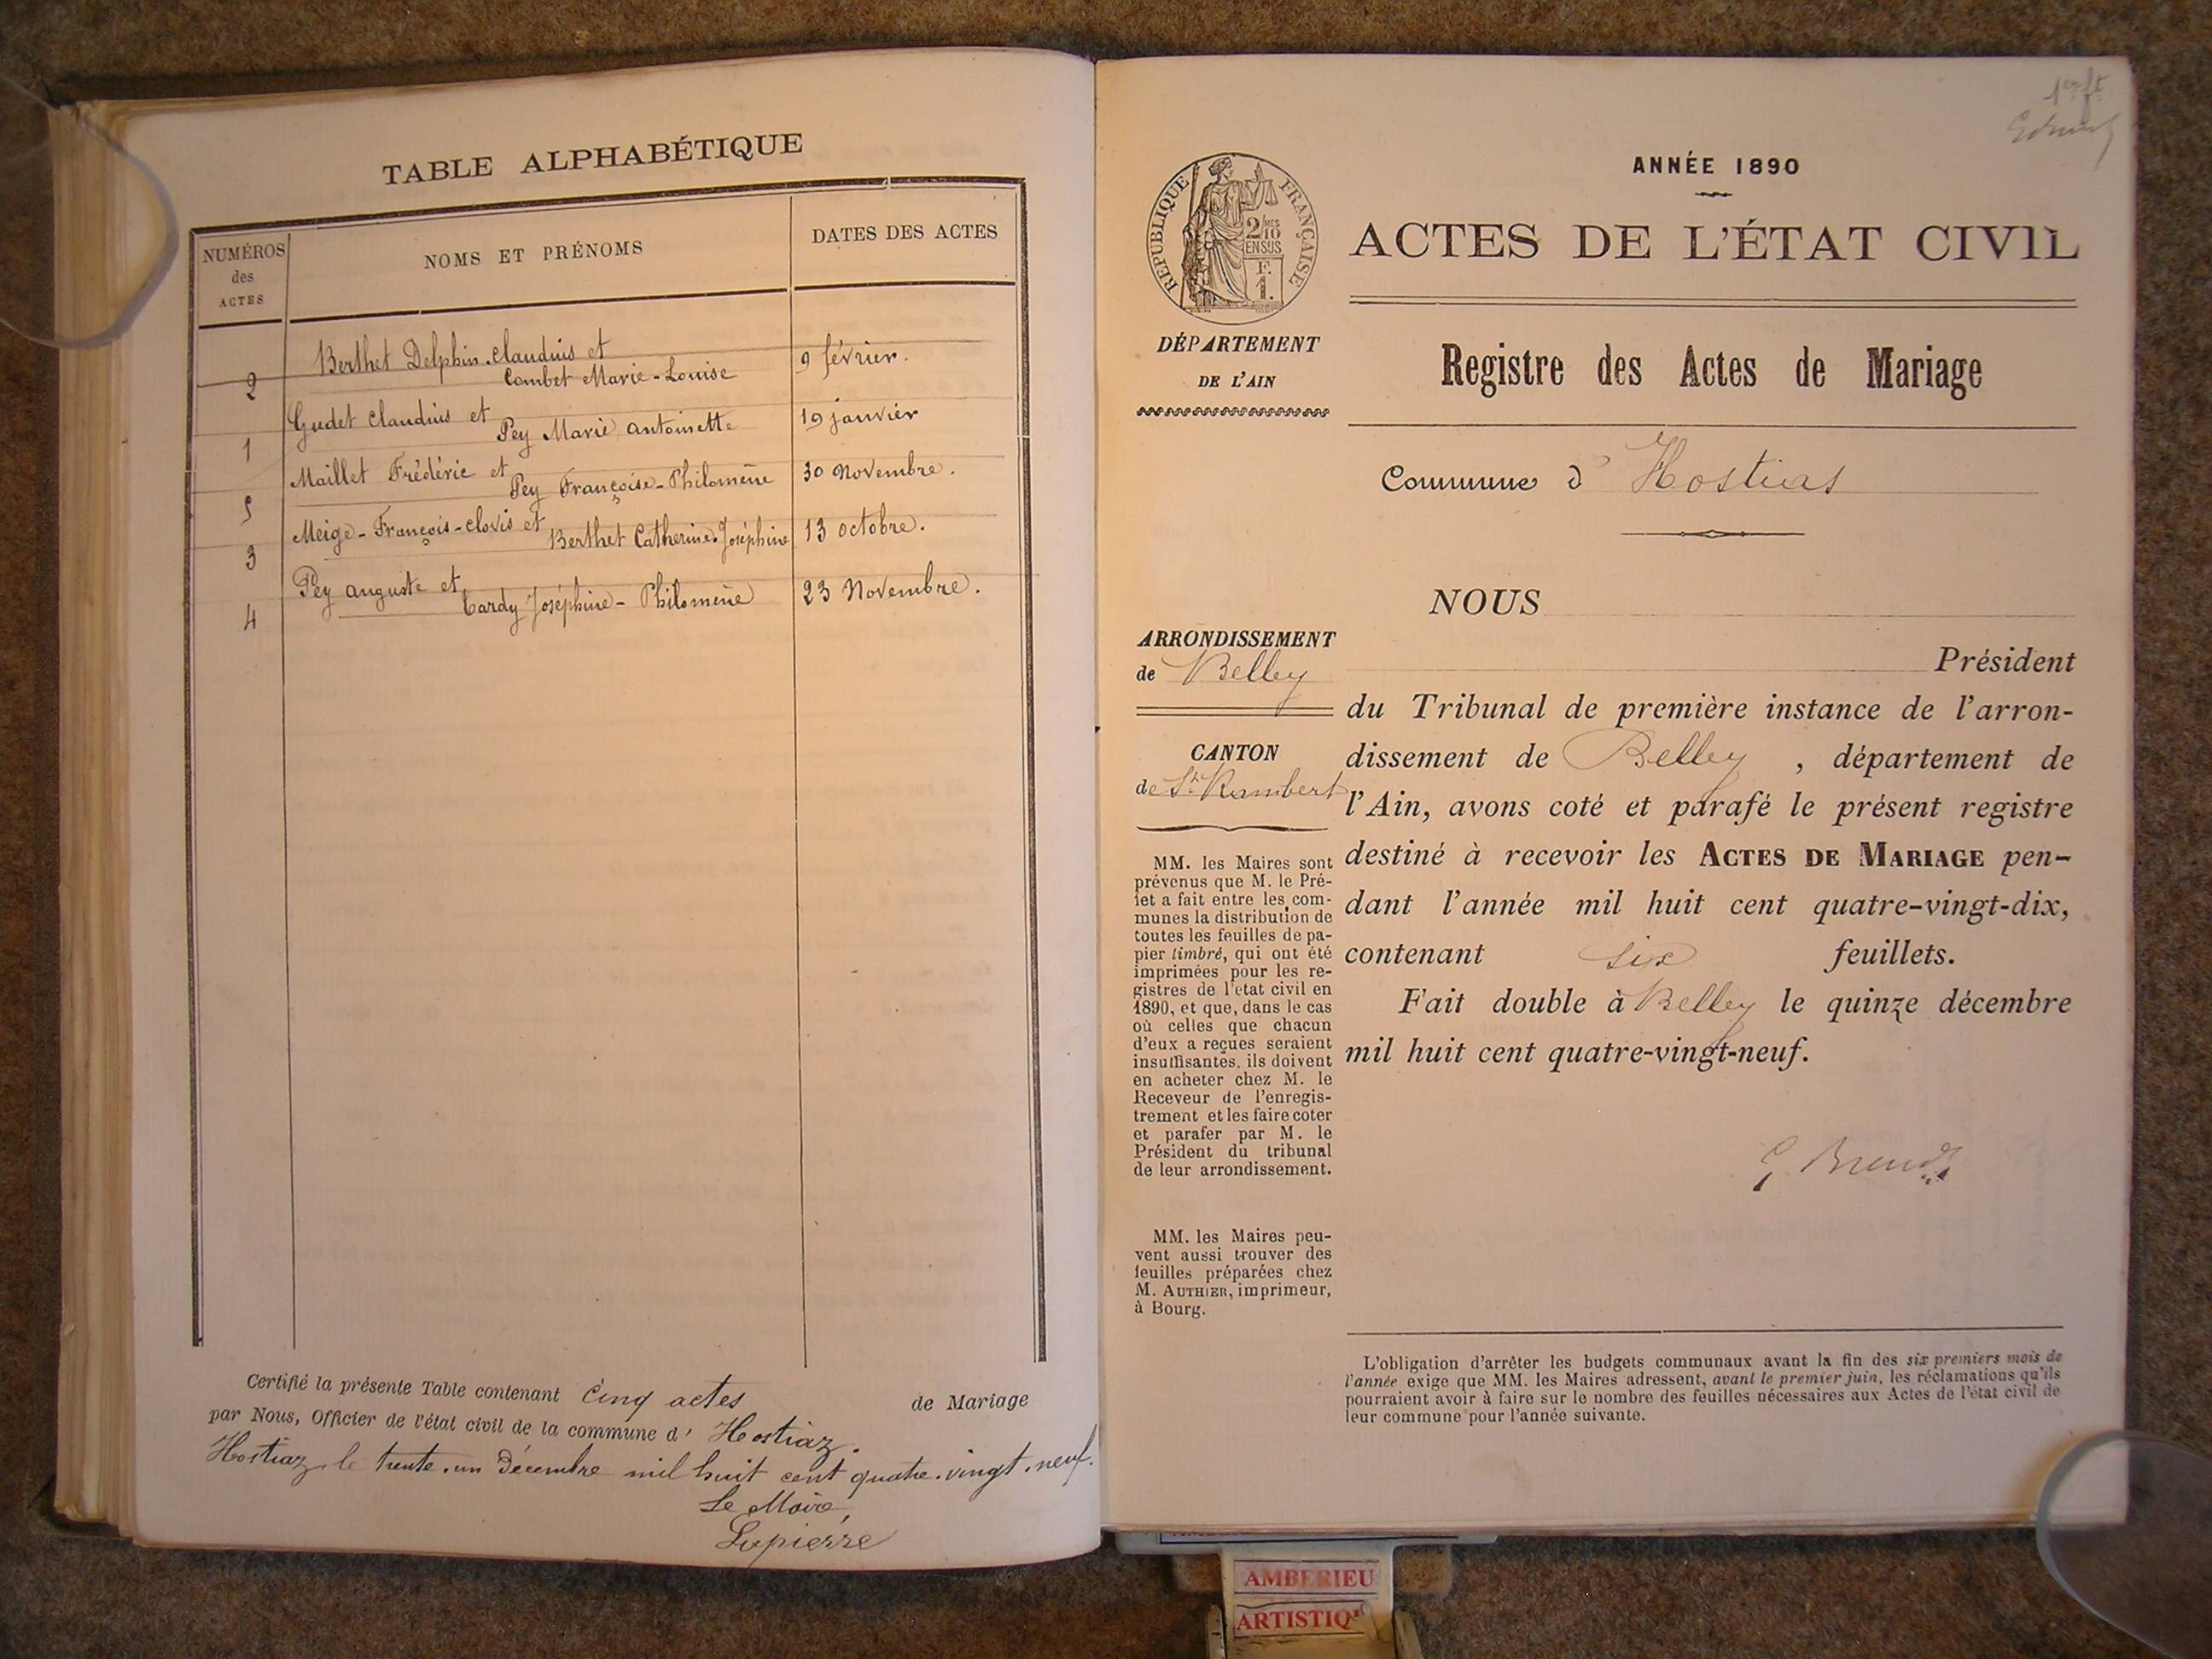 TABLE ALPHABÉTIQUE
NUMÉROS
des
ACTES
NOMS ET PRÉNOMS
DATES DES ACTES
2
Berthet Delphin Claudius et
Combet Marie-Louise
9 février.
1
Gudet Claudius et
Pey Marie antoinette
19 janvier
5
Maillet Frédéric et
Pey Françoise-Philomène
30 Novembre.
3
Meige-François-clovis et
Berthet Catherine-Joséphine
13 octobre.
4
Pey auguste et
Cardy Joséphine-Philomène
23 Novembre.
Certifié la présente Table contenant Cinq actes de Mariage
par Nous, Officier de l'état civil de la commune d' Hostiaz.
Hostiaz, le trente-un Décembre mil huit cent quatre-vingt-neuf.
Le Maire,
Lapierre
1er ft
RÉPUBLIQUE FRANÇAISE
2/10MES
EN SUS
F.
1.
DÉPARTEMENT
DE L'AIN
ARRONDISSEMENT
de Belley
CANTON
de St. Rambert
MM. les Maires sont
prévenus que M. le Pré-
fet a fait entre les com-
munes la distribution de
toutes les feuilles de pa-
pier timbré, qui ont été
imprimées pour les re-
gistres de l'état civil en
1890, et que, dans le cas
où celles que chacun
d'eux a reçues seraient
insuffisantes, ils doivent
en acheter chez M. le
Receveur de l'enregis-
trement et les faire coter
et parafer par M. le
Président du tribunal
de leur arrondissement.
MM. les Maires peu-
vent aussi trouver des
feuilles préparées chez
M. AUTHIER, imprimeur,
à Bourg.
ANNÉE 1890
ACTES DE L'ÉTAT CIVIL
Registre des Actes de Mariage
Commune d' Hostias
NOUS
Président
du Tribunal de première instance de l'arron-
dissement de Belley , département de
l'Ain, avons coté et parafé le présent registre
destiné à recevoir les ACTES DE MARIAGE pen-
dant l'année mil huit cent quatre-vingt-dix,
contenant six feuillets.
Fait double à Belley le quinze décembre
mil huit cent quatre-vingt-neuf.
L'obligation d'arrêter les budgets communaux avant la fin des six premiers mois de
l'année exige que MM. les Maires adressent, avant le premier juin, les réclamations qu'ils
pourraient avoir à faire sur le nombre des feuilles nécessaires aux Actes de l'état civil de
leur commune pour l'année suivante.
AMBERIEU
ARTISTIQ